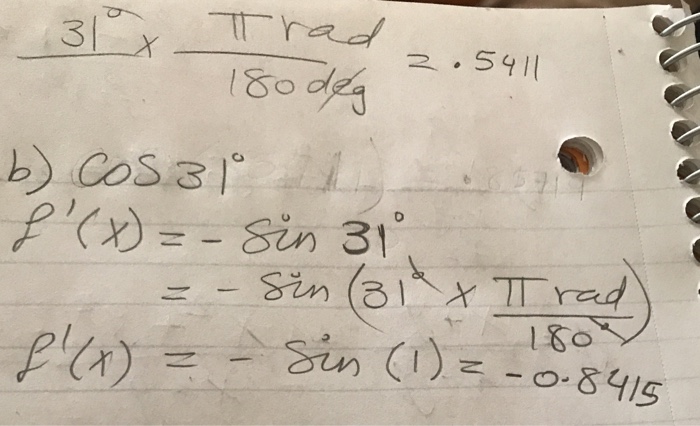 31° x π rad / 180 deg = .5411
b) cos 31°
f'(x) = - sin 31°
= - sin (31° x π rad / 180°)
f'(x) = - sin (1) = -0.8415